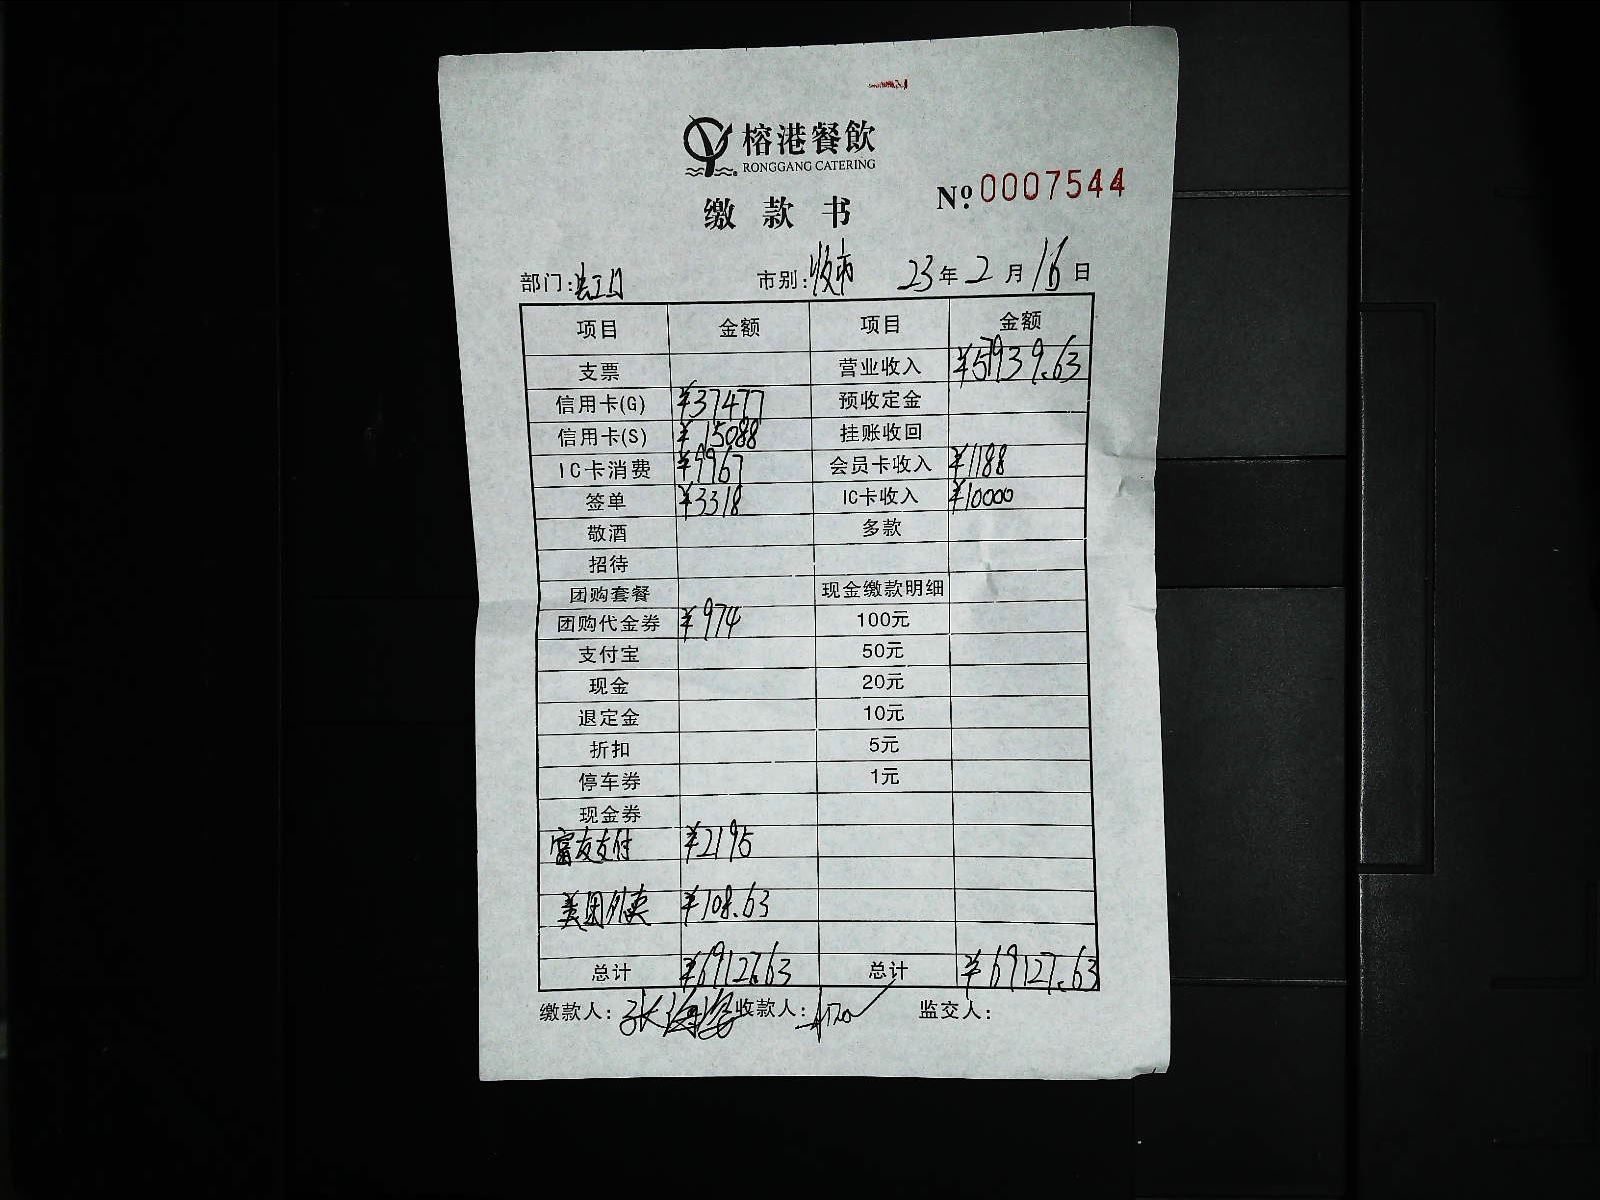 榕港餐飲
RONGGANG CATERING
缴款书
№ 0007544
部门: 市别: 23年2月16日
项目 金额 项目 金额
支票 营业收入 ¥57939.63
信用卡(G) ¥37477 预收定金
信用卡(S) ¥15088 挂账收回
IC卡消费 ¥9967 会员卡收入 ¥1188
签单 ¥3318 IC卡收入 ¥10000
敬酒 多款
招待
团购套餐 现金缴款明细
团购代金券 ¥974 100元
支付宝 50元
现金 20元
退定金 10元
折扣 5元
停车券 1元
现金券
富友支付 ¥2195
美团外卖 ¥108.63
总计 ¥69127.63 总计 ¥69127.63
缴款人: 张海 收款人: 监交人: